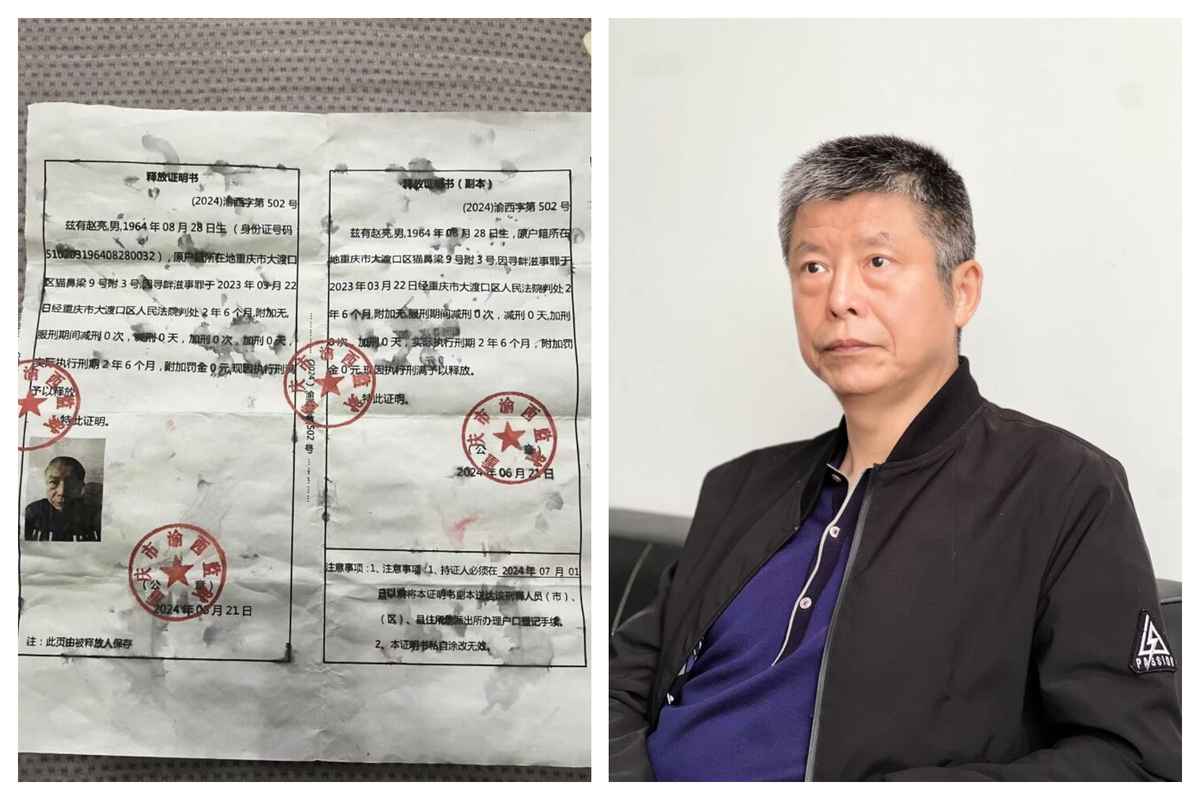 释放证明书
(2024)渝西字第 502 号
兹有赵亮,男,1964 年 08 月 28 日生（身份证号码
510203196408280032），原户籍所在地重庆市大渡口
区猫鼻梁 9 号附 3 号,因寻衅滋事罪于 2023 年 03 月 22
日经重庆市大渡口区人民法院判处 2 年 6 个月,附加无,
服刑期间减刑 0 次，减刑 0 天，加刑 0 次，加刑 0 天，
实际执行刑期 2 年 6 个月，附加罚金 0 元,现因执行刑满
予以释放
特此证明。
重庆市渝西监狱
（公 章）
2024 年 06 月 21 日
注：此页由被释放人保存
(2024) 502 号
释放证明书（副本）
(2024)渝西字第 502 号
兹有赵亮,男,1964 年 08 月 28 日生，原户籍所在
地重庆市大渡口区猫鼻梁 9 号附 3 号,因寻衅滋事罪于
2023 年 03 月 22 日经重庆市大渡口区人民法院判处 2
年 6 个月,附加无,服刑期间减刑 0 次，减刑 0 天,加刑
0 次，加刑 0 天，实际执行刑期 2 年 6 个月，附加罚
金 0 元,现因执行刑满予以释放。
特此证明。
重庆市渝西监狱
（公 章）
2024 年 06 月 21 日
注意事项：1、注意事项：1、持证人必须在 2024 年 07 月 01
日以前将本证明书副本送达该刑释人员（市）、
（区）、县住所地派出所办理户口登记手续。
2、本证明书私自涂改无效。
PASSION